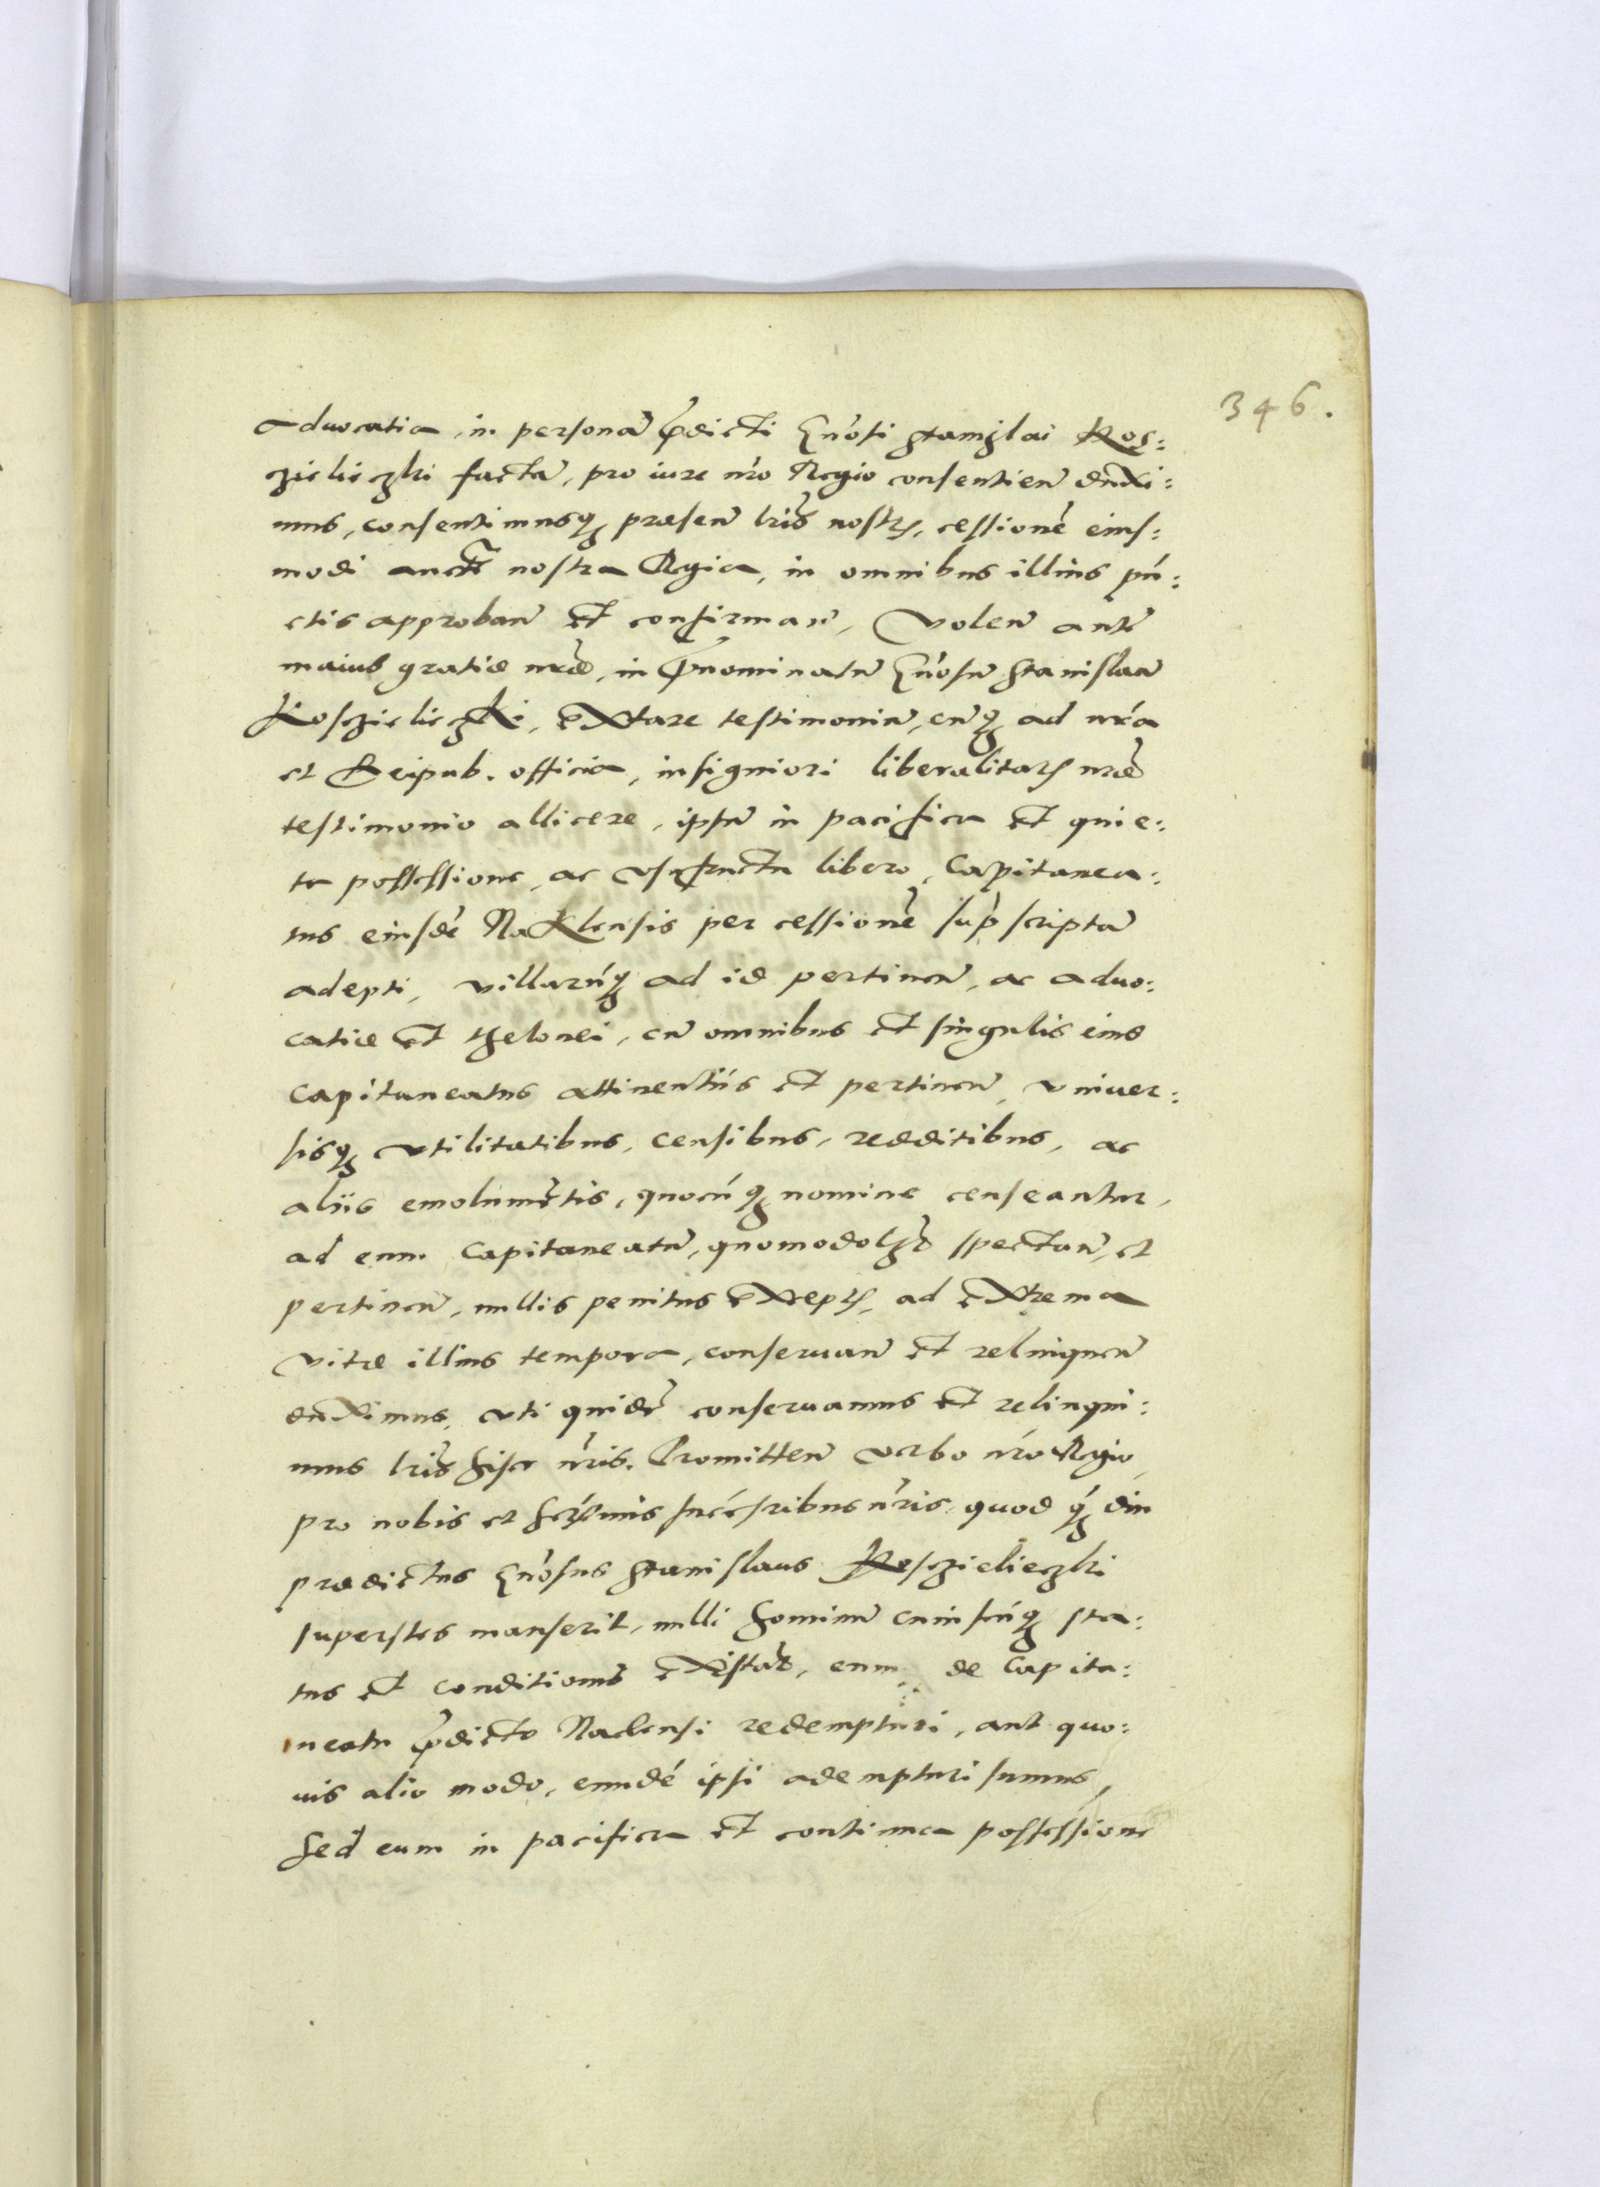 346.
aduocatia, in personã p̃dicti Gn̄osi Stanislai Kos:
zieliczki factã, pro iure nr̃o Regio consentien̄ duxi:
mus, consentimusq̨ præsen̄ lrĩs nostrʒ, cessionẽ eius:
modi auctẽ nostra Regia, in omnibus illius pũ:
ctis approban̄ et confirman̄, Volen̄ autẽ
maius gratiæ nr̃æ, in p̃nominatũ Gn̄osũ Stanislaũ
Kosczieliczki, extare testimoniũ, eũq̨ ad nr̃a
et Reipub. officia, insigniori liberalitatʒ nr̃æ
testimonio allicere, ipsũ in pacifica et quie:
ta possessione, ac vsufructu libero, Capitanea:
tus eiusdẽ Naklensis per cessionẽ sup̃scriptã
adepti, villarũq̨ ad id pertinen̄, ac aduo:
catiæ et thelonei, cũ omnibus et singulis eius
Capitaneatus attinentiis et pertinen̄, vniuer:
sisq̨ vtilitatibus, censibus, redditibus, ac
aliis emolumẽtis, quocũq̨ nomine censeantur,
ad eum Capitaneatũ, quomodolʒt spectan̄, et
pertinen̄, nullis penitus exceptʒ, ad extrema
vitæ illius tempora, conseruan̄ et relinquen̄
duximus, vti quidẽ conseruamus et relinqui:
mus lrĩs hisce nr̃is. Promitten̄ verbo nr̃o Regio,
pro nobis et Serẽmis succẽsoribus nr̃is, quod q̨ diu
prædictus Gn̄osus Stanislaus Kosczielieczki
superstes manserit, nulli hominũ cuiuscũq̨ sta:
tus et conditionis existat, eum de Capita:
neatu p̃dicto Naclensi redempturi, aut quo:
uis alio modo, eundẽ ipsi adempturi sumus,
Sed eum in pacifica et continua possessione